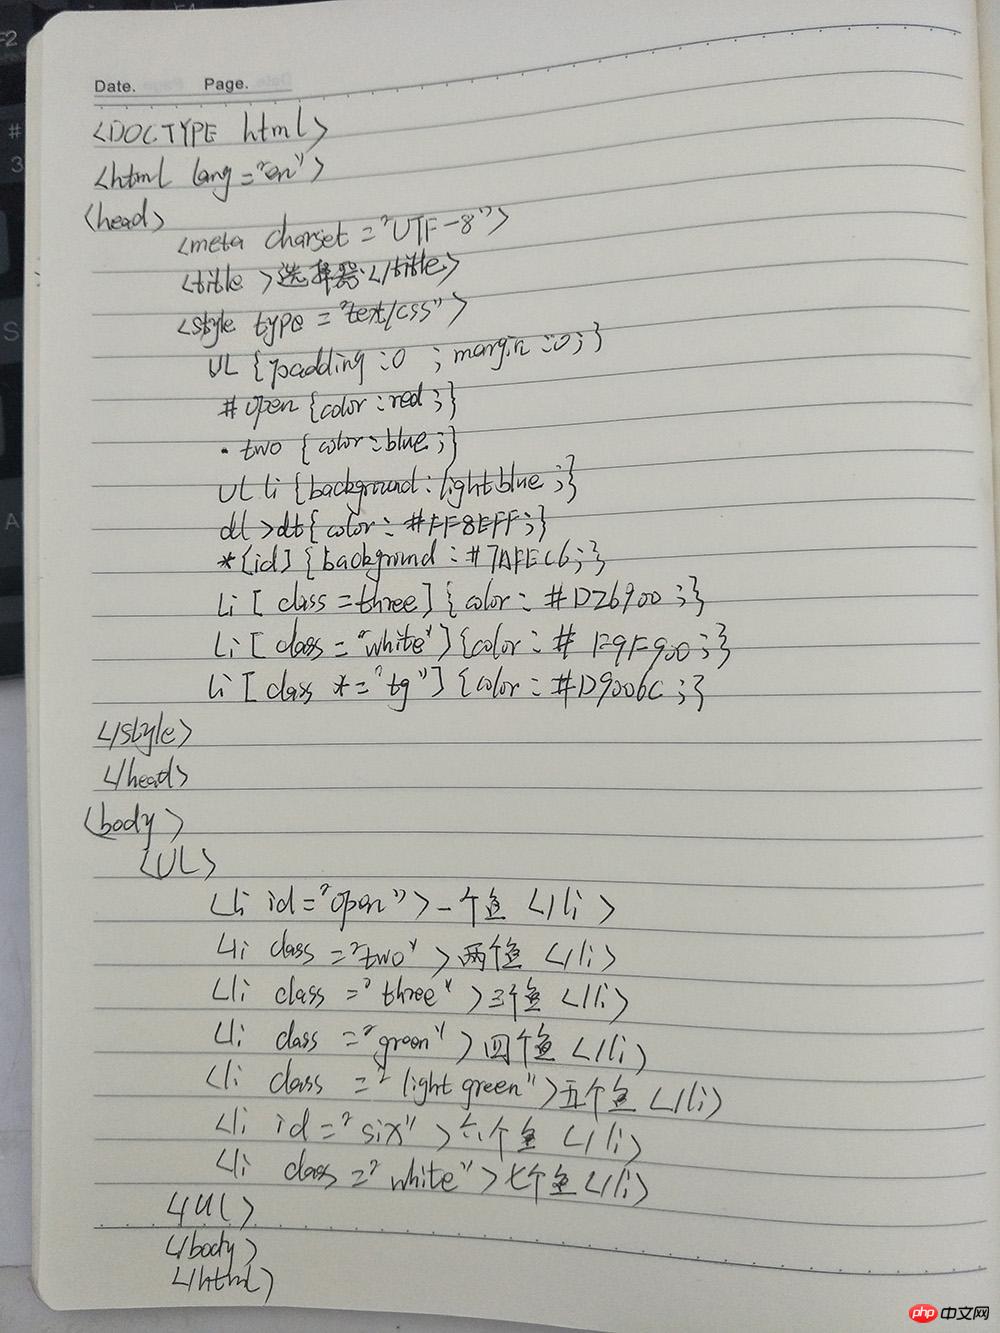 F2
#
3
S
A
Date. Page.
<DOCTYPE html>
<html lang="en">
<head>
<meta charset="UTF-8">
<title>选择器</title>
<style type="text/css">
UL {padding:0 ; margin:0;}
#open {color:red;}
.two {color:blue;}
UL li {background:lightblue;}
dl>dt{color:#FF8EFF;}
*[id]{background:#7AFEC6;}
Li[class=three]{color:#D26900;}
Li[class="white"]{color:#F9F900;}
li[class *="tg"]{color:#D9006C;}
</style>
</head>
<body>
<UL>
<li id="open">一个鱼</li>
<li class="two">两个鱼</li>
<li class="three">三个鱼</li>
<li class="green">四个鱼</li>
<li class="light green">五个鱼</li>
<li id="six">六个鱼</li>
<li class="white">七个鱼</li>
</UL>
</body>
</html>
php中文网